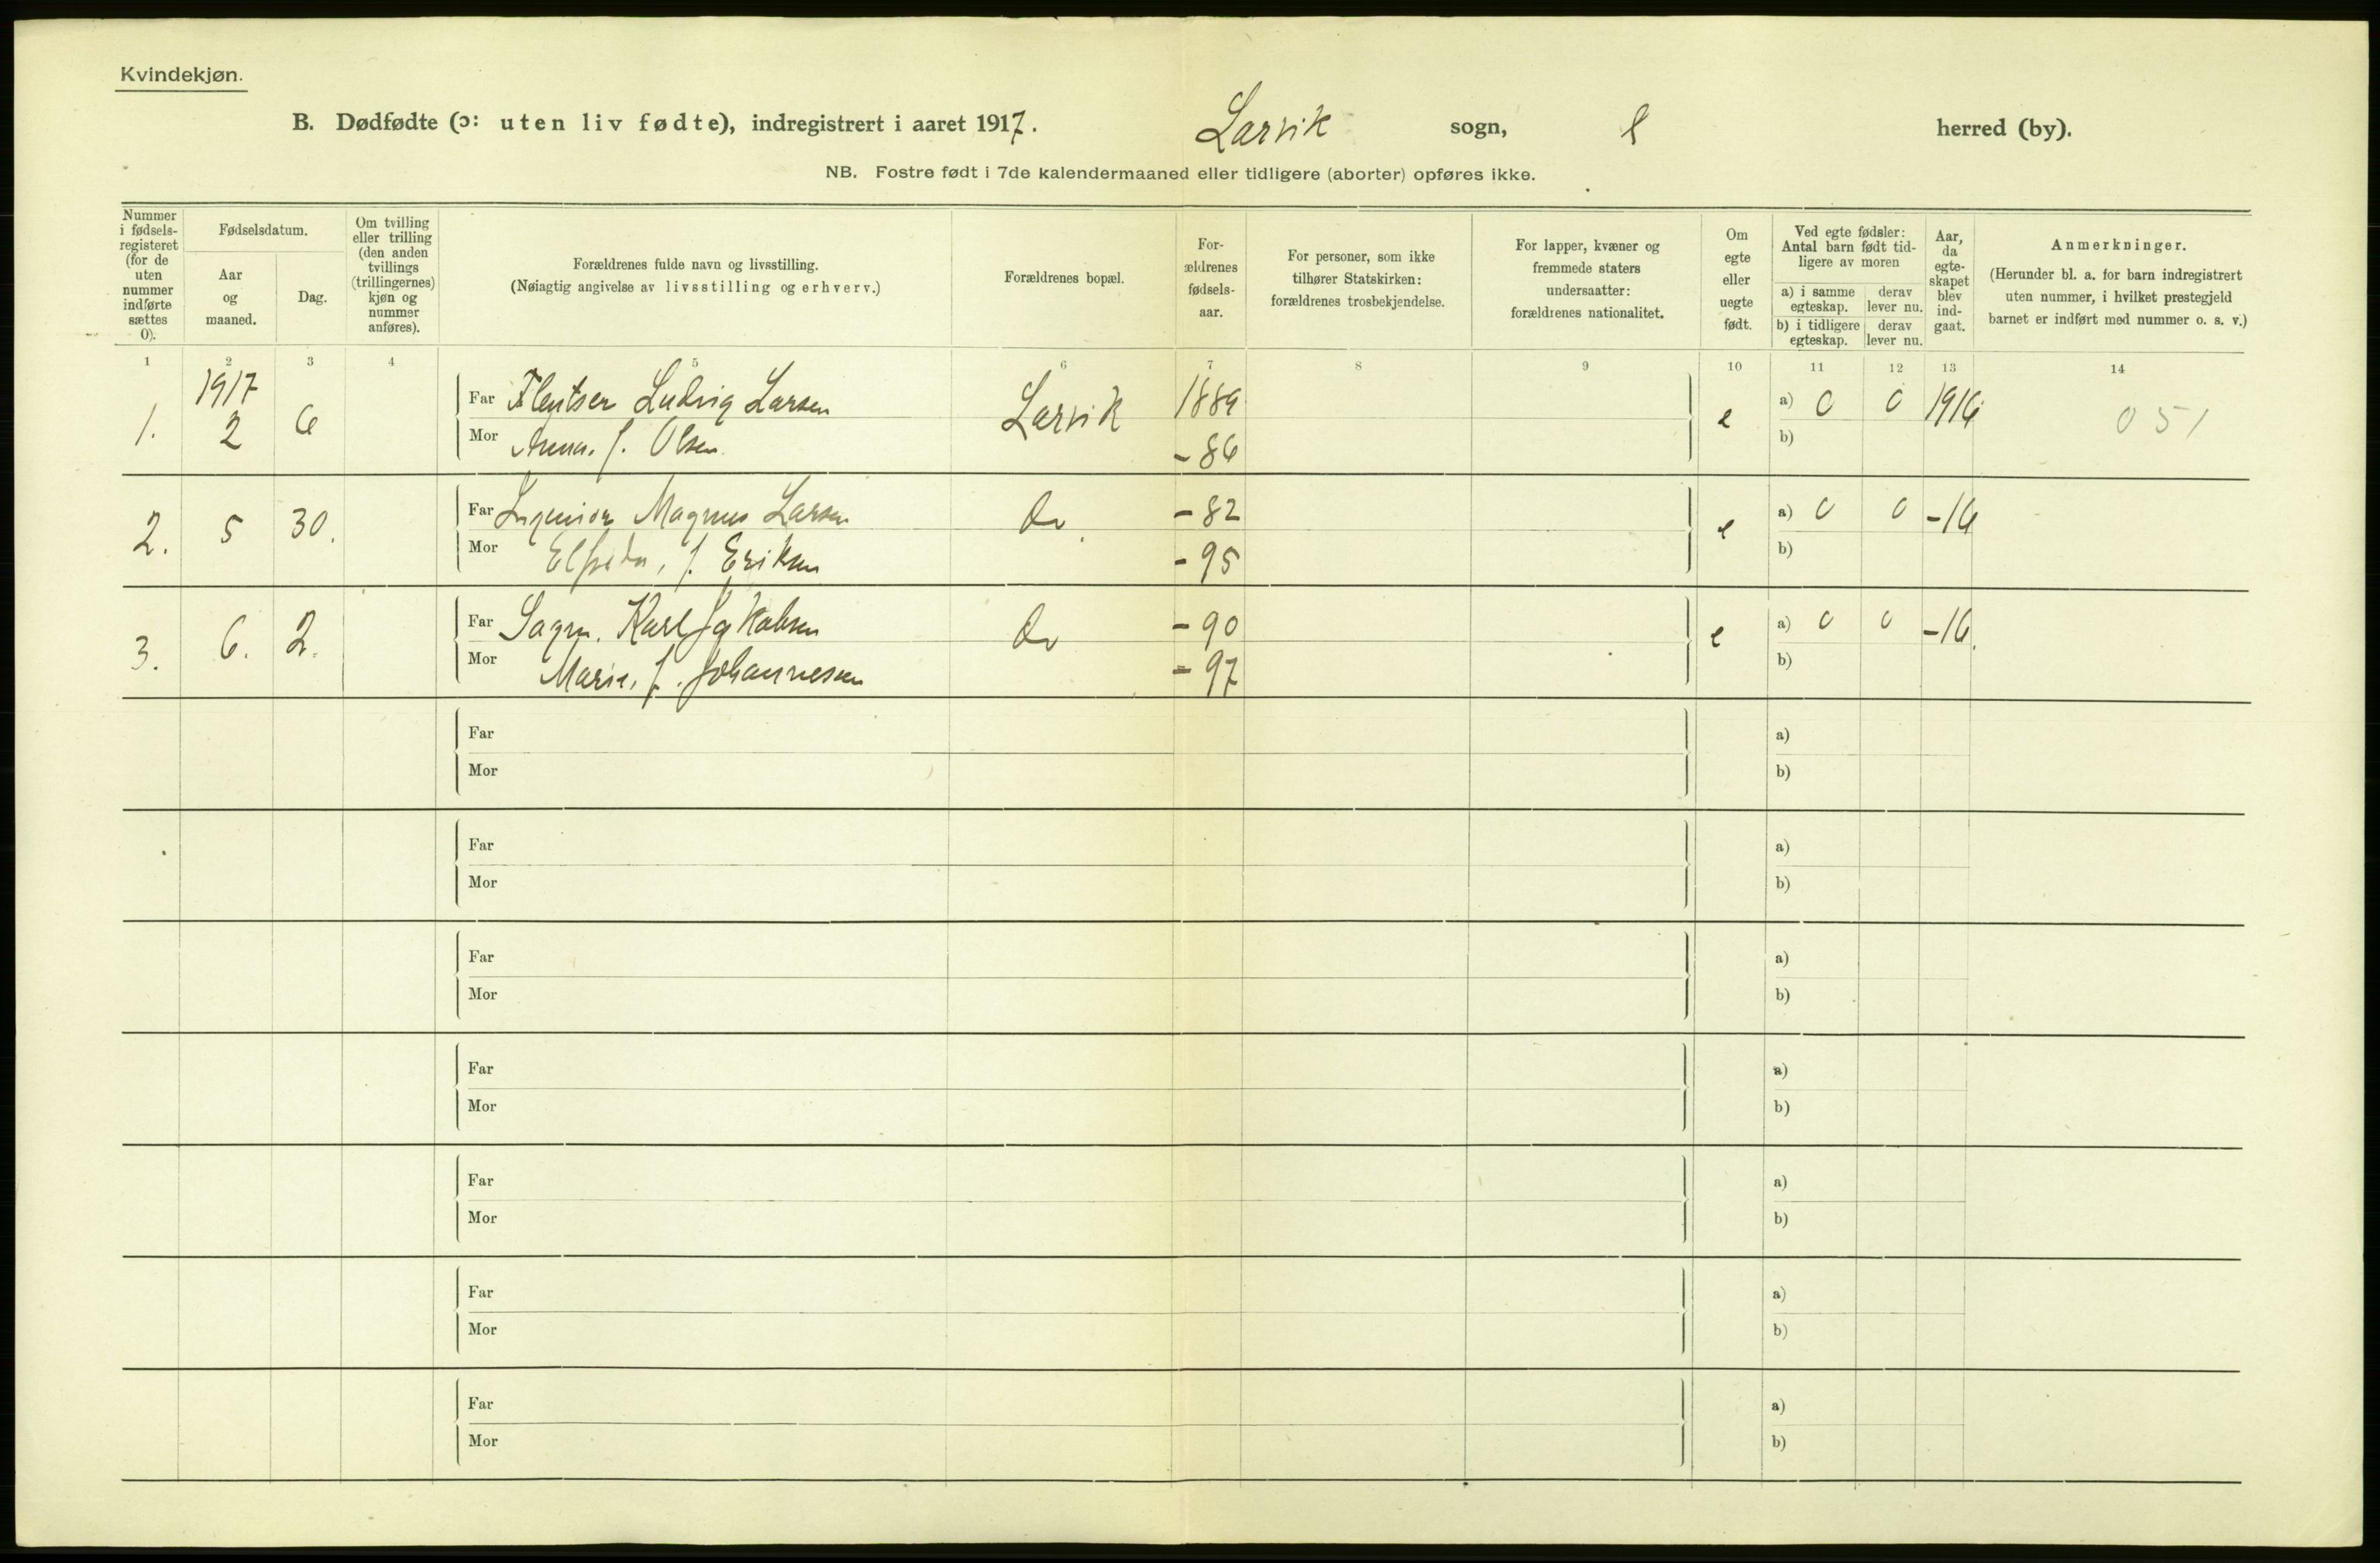 Kvindekjøn.
B. Dødfødte (ɔ: uten liv fødte), indregistrert i aaret 1917. Larvik sogn, herred (by).
NB. Fostre født i 7de kalendermaaned eller tidligere (aborter) opføres ikke.
Nummer i fødsels-registeret (for de uten nummer indførte sættes 0).
Fødselsdatum.
Aar og maaned.
Dag.
Om tvilling eller trilling (den anden tvillings (trillingernes) kjøn og nummer anføres).
Forældrenes fulde navn og livsstilling.
(Nøiagtig angivelse av livsstilling og erhverv.)
Forældrenes bopæl.
For-ældrenes fødsels-aar.
For personer, som ikke tilhører Statskirken: forældrenes trosbekjendelse.
For lapper, kvæner og fremmede staters undersaatter: forældrenes nationalitet.
Om egte eller uegte født.
Ved egte fødsler: Antal barn født tid-ligere av moren
a) i samme egteskap.
derav lever nu.
b) i tidligere egteskap.
derav lever nu.
Aar, da egte-skapet blev ind-gaat.
Anmerkninger.
(Herunder bl. a. for barn indregistrert uten nummer, i hvilket prestegjeld barnet er indført med nummer o. s. v.)
1 2 3 4 5 6 7 8 9 10 11 12 13 14
1917
1. 2 6 Far Ludvig Larsen Larvik 1889 e a) 0 0 1916 051
Mor Anna. f. Olsen. -86 b)
2. 5 30. Far Ingeniør Magnus Larsen do. -82 e a) 0 0 -16
Mor Elfrida, f. Eriksen -95 b)
3. 6. 2. Far Sagm. Karl Jakobsen do -90 e a) 0 0 -16.
Mor Marie, f. Johannesen -97 b)
Far a)
Mor b)
Far a)
Mor b)
Far a)
Mor b)
Far a)
Mor b)
Far a)
Mor b)
Far a)
Mor b)
Far a)
Mor b)